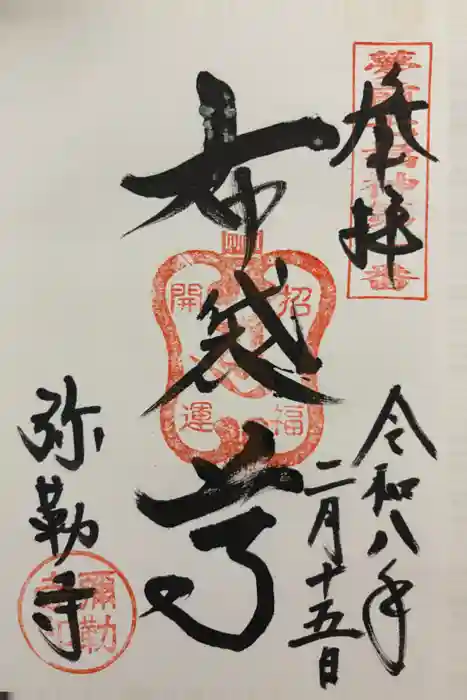 奉拝
令和八年
二月十五日
布袋尊
招福
開運
弥勒寺
彌勒寺